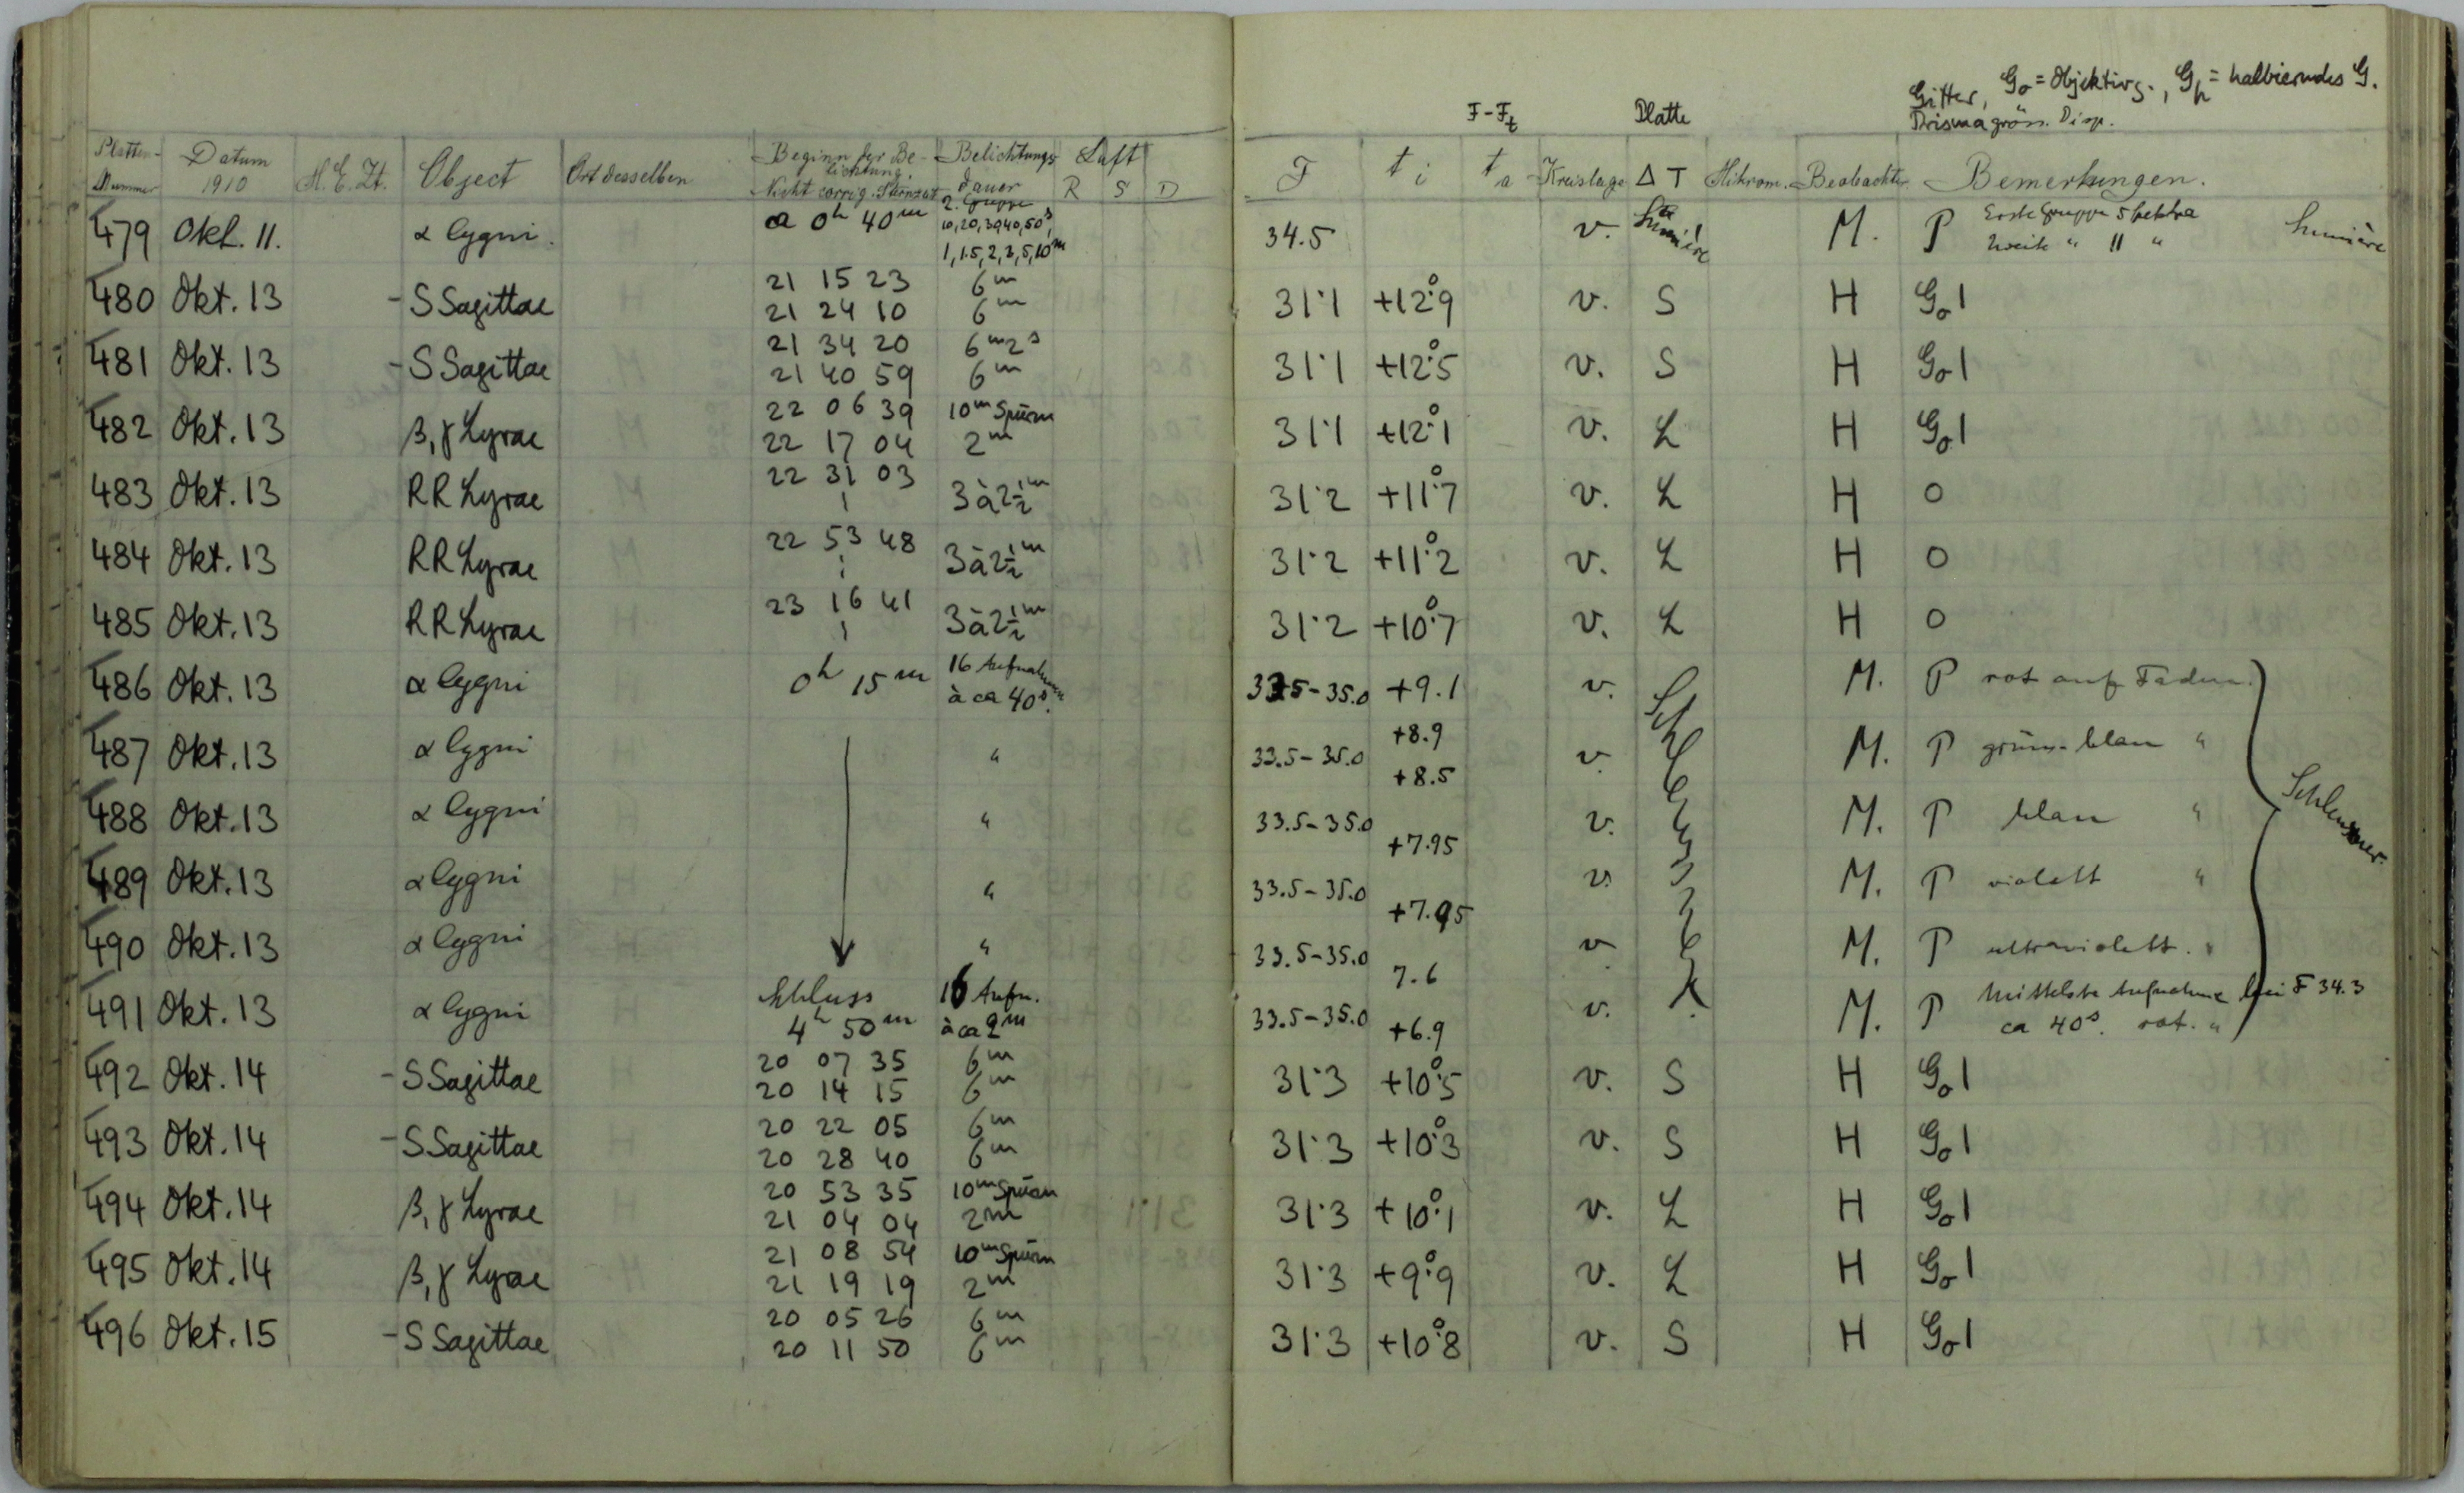 Gitter, Go = Objektivg., Gh = halbierendes G.
F-Ft Platte Prisma gröss. Disp.
Platten-Nummer Datum 1910 M.E.Zt. Object Ort desselben Beginn der Belichtung. Nicht corrig. Sternzeit Belichtungsdauer Luft R S D F ti ta Kreislage ΔT Mikrom. Beobachter Bemerkungen.
479 Okt. 11. α Cygni. ca 0h 40m 2. Gruppe 10, 20, 30, 40, 50s, 1, 1.5, 2, 3, 5, 10m 34.5 v. Lumière M. P Erste Gruppe 5 Spektra Lumière
Zweite " 11 "
480 Okt. 13 -S Sagittae 21 15 23 6m 31.1 +12°.9 v. S H Go1
21 24 10 6m
481 Okt. 13 -S Sagittae 21 34 20 6m2s 31.1 +12°.5 v. S H Go1
21 40 59 6m
482 Okt. 13 β, γ Lyrae 22 06 39 10m Spuren 31.1 +12°.1 v. L H Go1
22 17 04 2m
483 Okt. 13 RR Lyrae 22 31 03 3 à 2½m 31.2 +11°.7 v. L H O
484 Okt. 13 RR Lyrae 22 53 48 3 à 2½m 31.2 +11°.2 v. L H O
485 Okt. 13 RR Lyrae 23 16 41 3 à 2½m 31.2 +10°.7 v. L H O
486 Okt. 13 α Cygni 0h 15m 16 Aufnahmen à ca 40s. 33.5-35.0 +9.1 v. Schleussner M. P rot auf Faden.
487 Okt. 13 α Cygni " 33.5-35.0 +8.9 +8.5 v. M. P grün-blau "
488 Okt. 13 α Cygni " 33.5-35.0 +7.95 v. M. P blau " Schleussner.
489 Okt. 13 α Cygni " 33.5-35.0 +7.95 v. M. P violett "
490 Okt. 13 α Cygni " 33.5-35.0 7.6 v. M. P ultraviolett. "
491 Okt. 13 α Cygni Schluss 4h 50m 16 Aufn. à ca 2m 33.5-35.0 +6.9 v. M. P Mittelste Aufnahme bei F 34.3
ca 40s. rot. "
492 Okt. 14 -S Sagittae 20 07 35 6m 31.3 +10°.5 v. S H Go1
20 14 15 6m
493 Okt. 14 -S Sagittae 20 22 05 6m 31.3 +10°.3 v. S H Go1
20 28 40 6m
494 Okt. 14 β, γ Lyrae 20 53 35 10m Spuren 31.3 +10°.1 v. L H Go1
21 04 04 2m
495 Okt. 14 β, γ Lyrae 21 08 54 10m Spuren 31.3 +9°.9 v. L H Go1
21 19 19 2m
496 Okt. 15 -S Sagittae 20 05 26 6m 31.3 +10°.8 v. S H Go1
20 11 50 6m